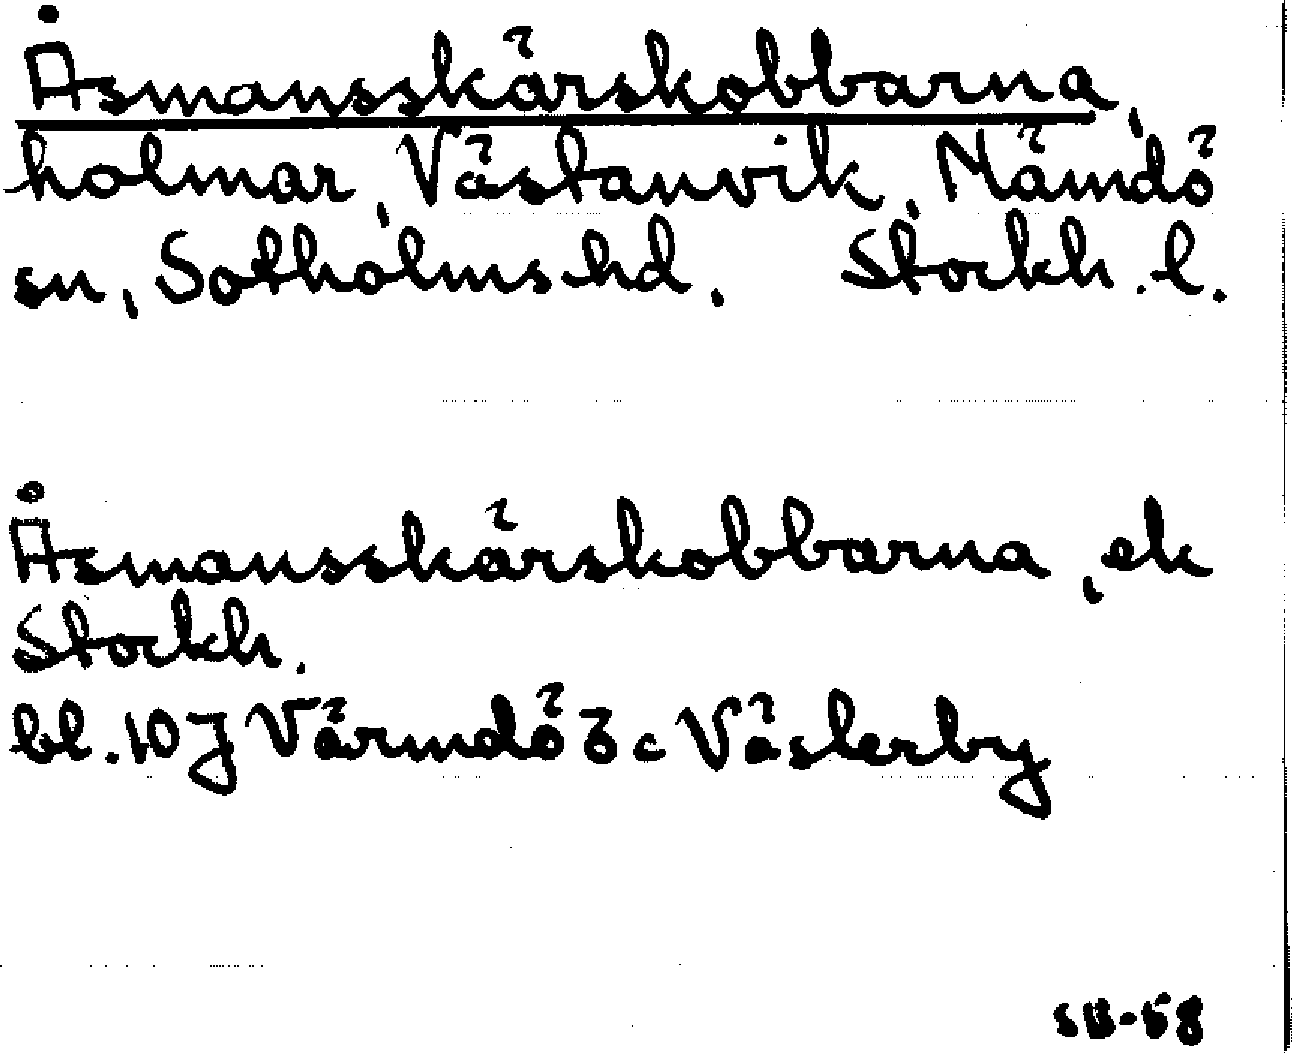 Åsmansskärskobbarna,
holmar, Västanvik, Nämdö
sn, Sotholms hd. Stockh. l.
Åsmansskärskobbarna, ek
Stockh.
bl. 10J Värmdö 3c Västerby
SB-58